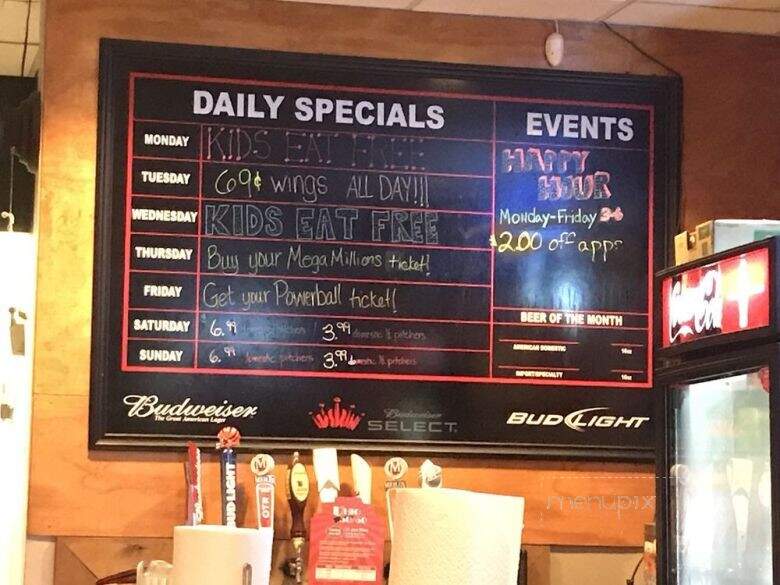 DAILY SPECIALS
MONDAY KIDS EAT FREE
TUESDAY 69¢ wings ALL DAY!!!
WEDNESDAY KIDS EAT FREE
THURSDAY Buy your Mega Millions ticket!
FRIDAY Get your Powerball ticket!
SATURDAY $6.99 domestic pitchers / 3.99 domestic ½ pitchers
SUNDAY 6.99 domestic pitchers 3.99 domestic ½ pitchers
EVENTS
HAPPY
HOUR
Monday-Friday 3-6
$2.00 off apps
BEER OF THE MONTH
AMERICAN DOMESTIC 16oz
IMPORT/SPECIALTY 16oz
Budweiser
The Great American Lager
Budweiser
SELECT
BUD LIGHT
Coca-Cola
BUD LIGHT
menupix